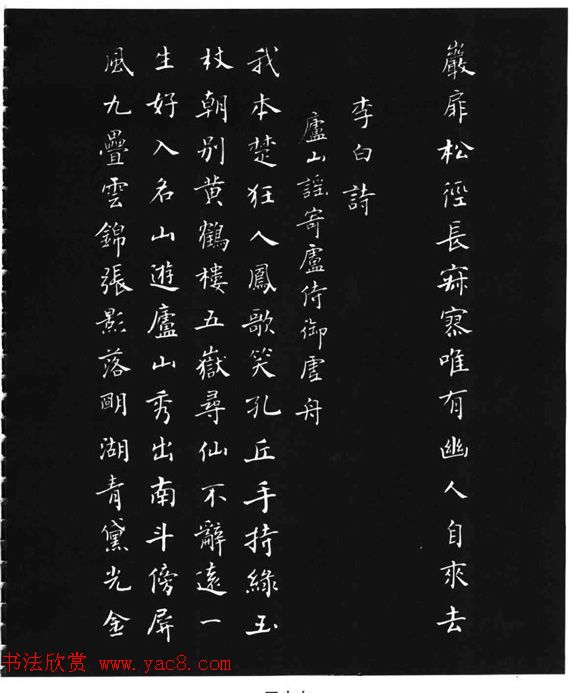 巖扉松徑長寂寥唯有幽人自來去
李白詩
廬山謠寄盧侍御虛舟
我本楚狂人鳳歌笑孔丘手持綠玉
杖朝別黃鶴樓五嶽尋仙不辭遠一
生好入名山遊廬山秀出南斗傍屏
風九疊雲錦張影落明湖青黛光金
书法欣赏 www.yac8.com